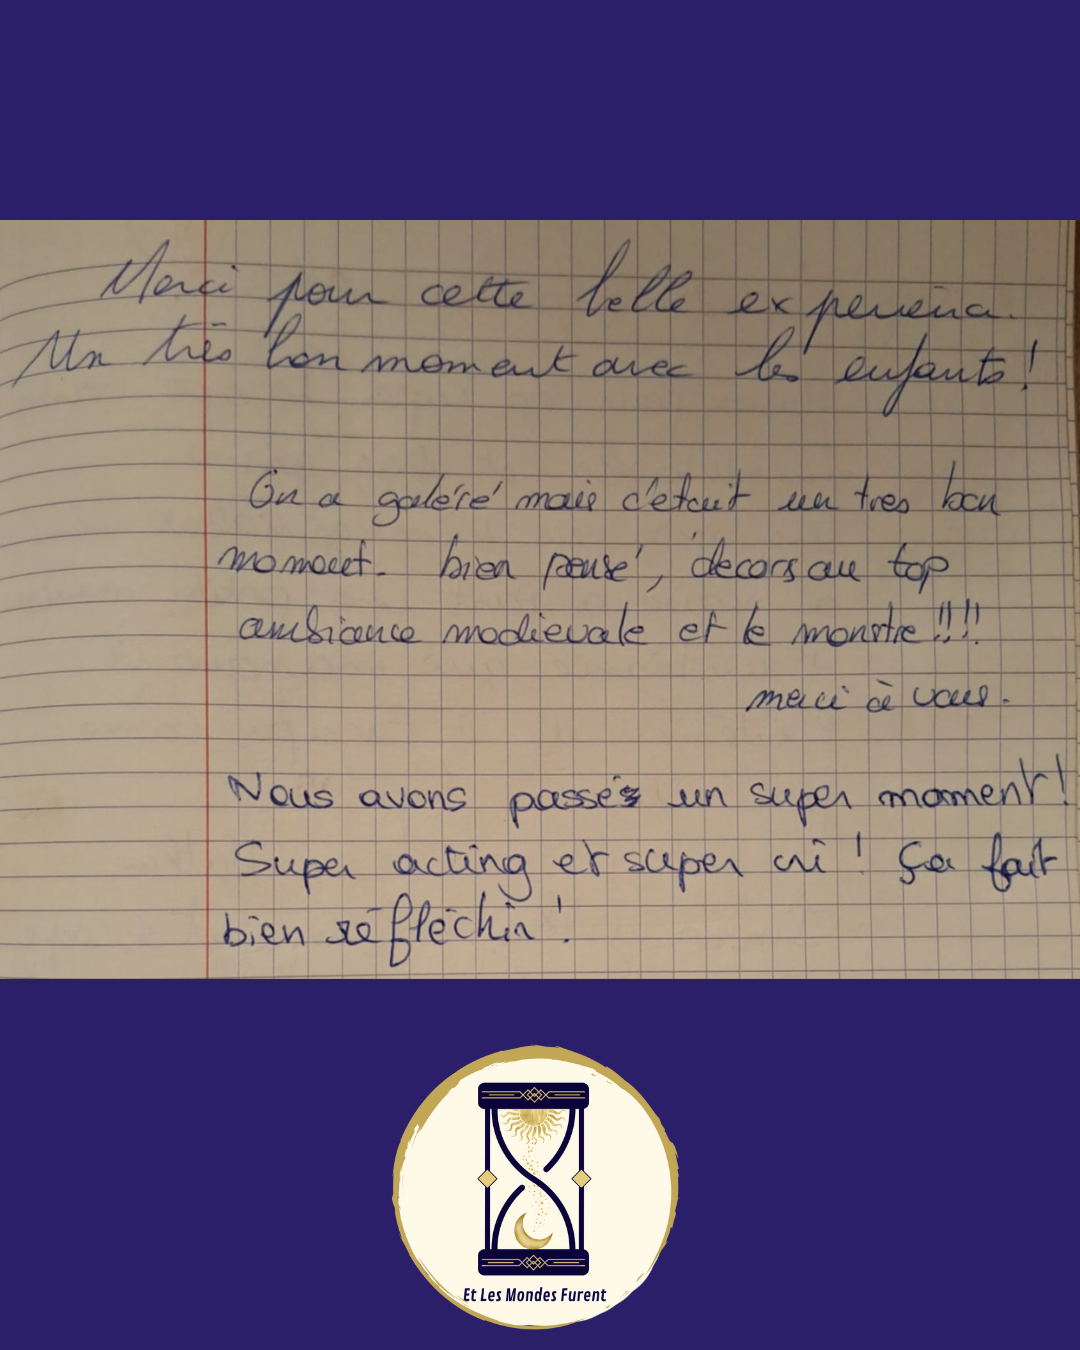 Merci pour cette belle experience.
Un très bon moment avec les enfants!
On a galéré mais c'etait un tres bon
moment. bien pensé, decors au top
ambiance medievale et le monstre!!!!
merci à vous.
Nous avons passés un super moment!
Super acting et super cri! Ça fait
bien réfléchir!
Et Les Mondes Furent